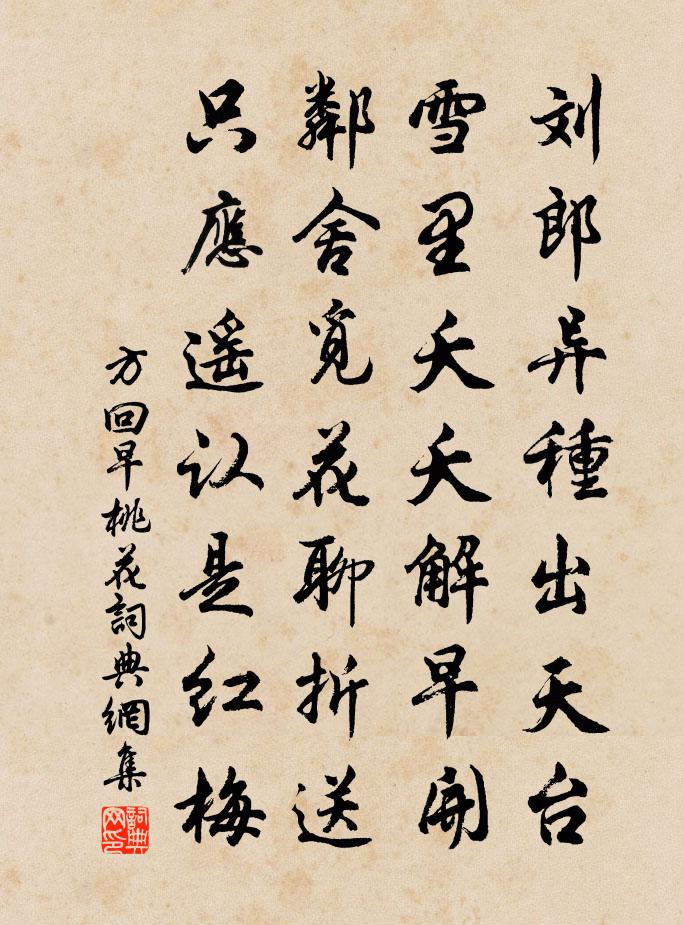 刘郎异種出天台
雪里夭夭解早開
鄰舍覓花聊折送
只應遥认是红梅
方回早桃花詞典網集
詞典网印